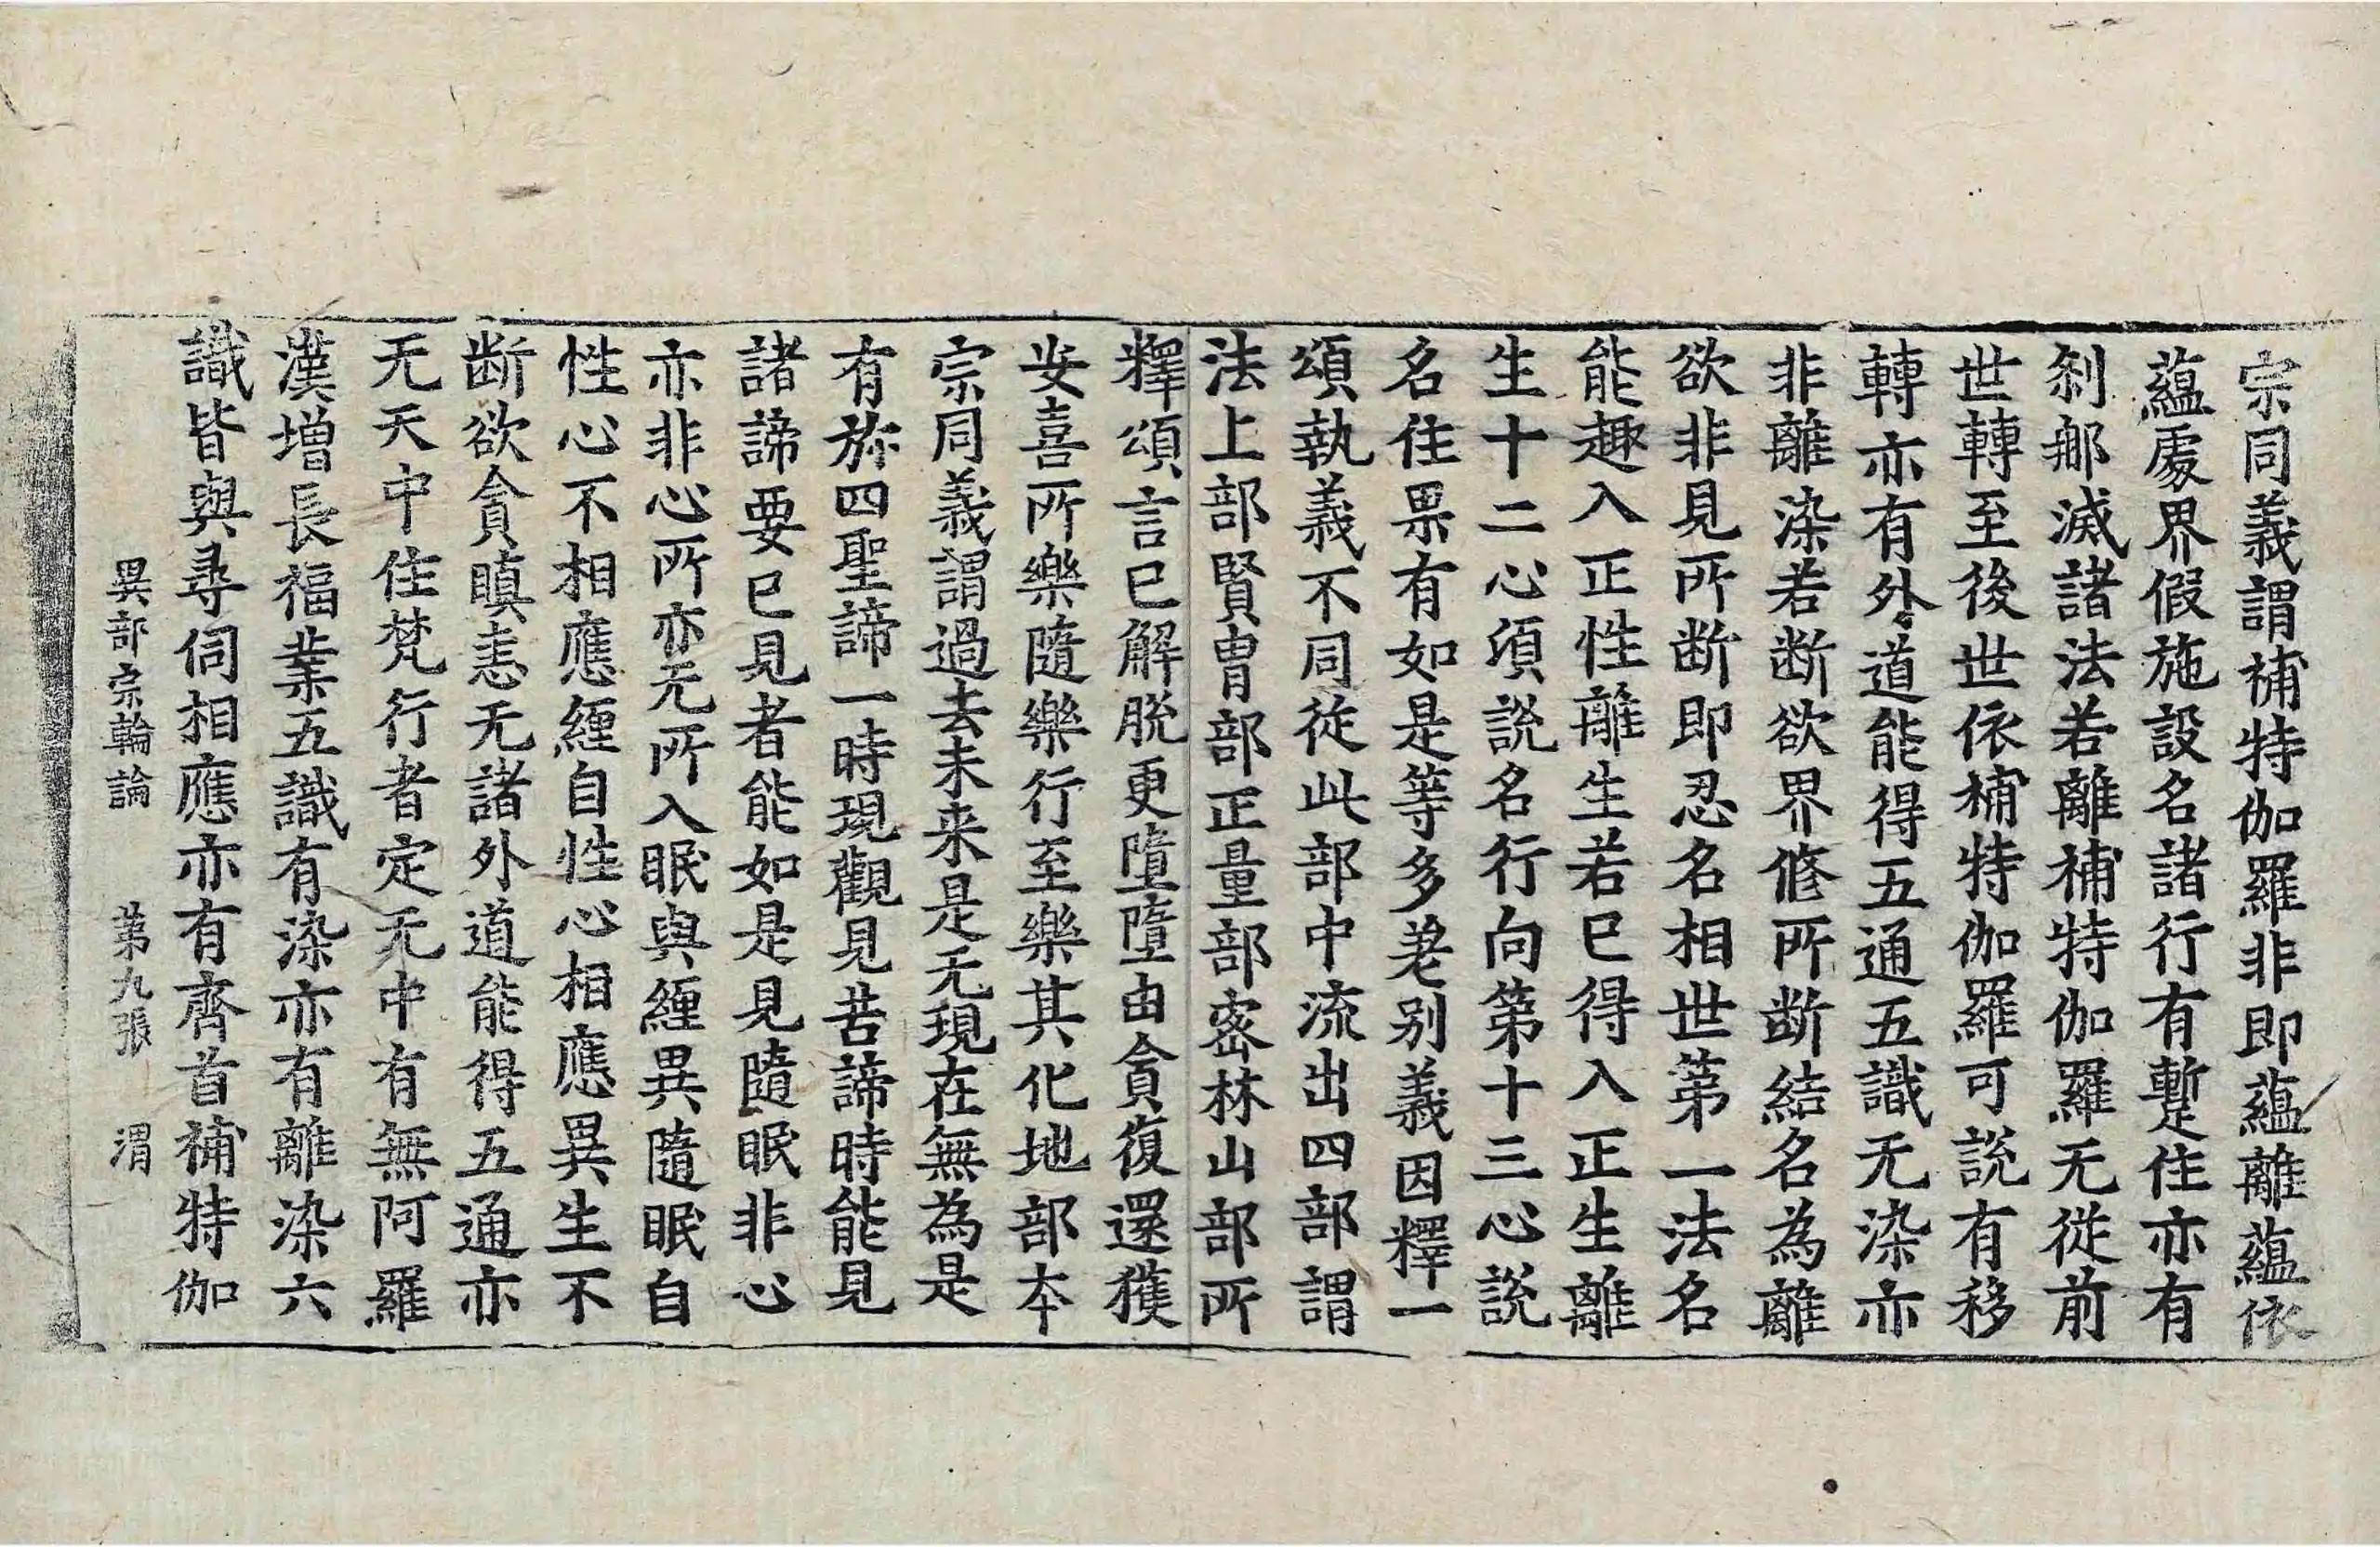 宗同義謂補特伽羅非即蘊離蘊依
蘊處界假施設名諸行有暫住亦有
刹那滅諸法若離補特伽羅无從前
世轉至後世依補特伽羅可說有移
轉亦有外道能得五通五識无染亦
非離染若断欲界修所断結名為離
欲非見所断即忍名相世第一法名
能趣入正性離生若巳得入正生離
生十二心頃說名行向第十三心說
名住果有如是等多差别義因釋一
頌執義不同從此部中流出四部謂
法上部賢胄部正量部密林山部所
釋頌言巳解脫更墮墮由貪復還獲
安喜所樂隨樂行至樂其化地部本
宗同義謂過去未来是无現在無為是
有於四聖諦一時現觀見苦諦時能見
諸諦要巳見者能如是見隨眠非心
亦非心所亦无所入眠與纏異隨眠自
性心不相應纏自性心相應異生不
断欲貪瞋恚无諸外道能得五通亦
无天中住梵行者定无中有無阿羅
漢增長福業五識有染亦有離染六
識皆與尋伺相應亦有齊首補特伽
異部宗輪論 第九張 渭